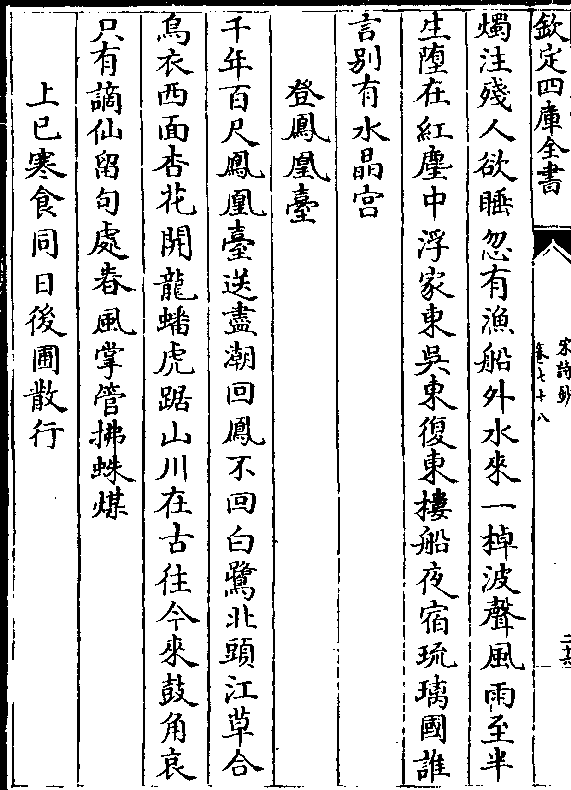 欽定四庫全書
宋詩鈔
卷七十八
燭注殘人欲睡忽有漁船外水來一棹波聲風雨至半
生墮在紅塵中浮家東吳東復東樓船夜宿琉璃國誰
言別有水晶宮
登鳳凰臺
千年百尺鳳凰臺送盡潮回鳳不回白鷺北頭江草合
烏衣西面杏花開龍蟠虎踞山川在古往今來鼓角哀
只有謫仙留句處春風掌管拂蛛煤
上巳寒食同日後圃散行